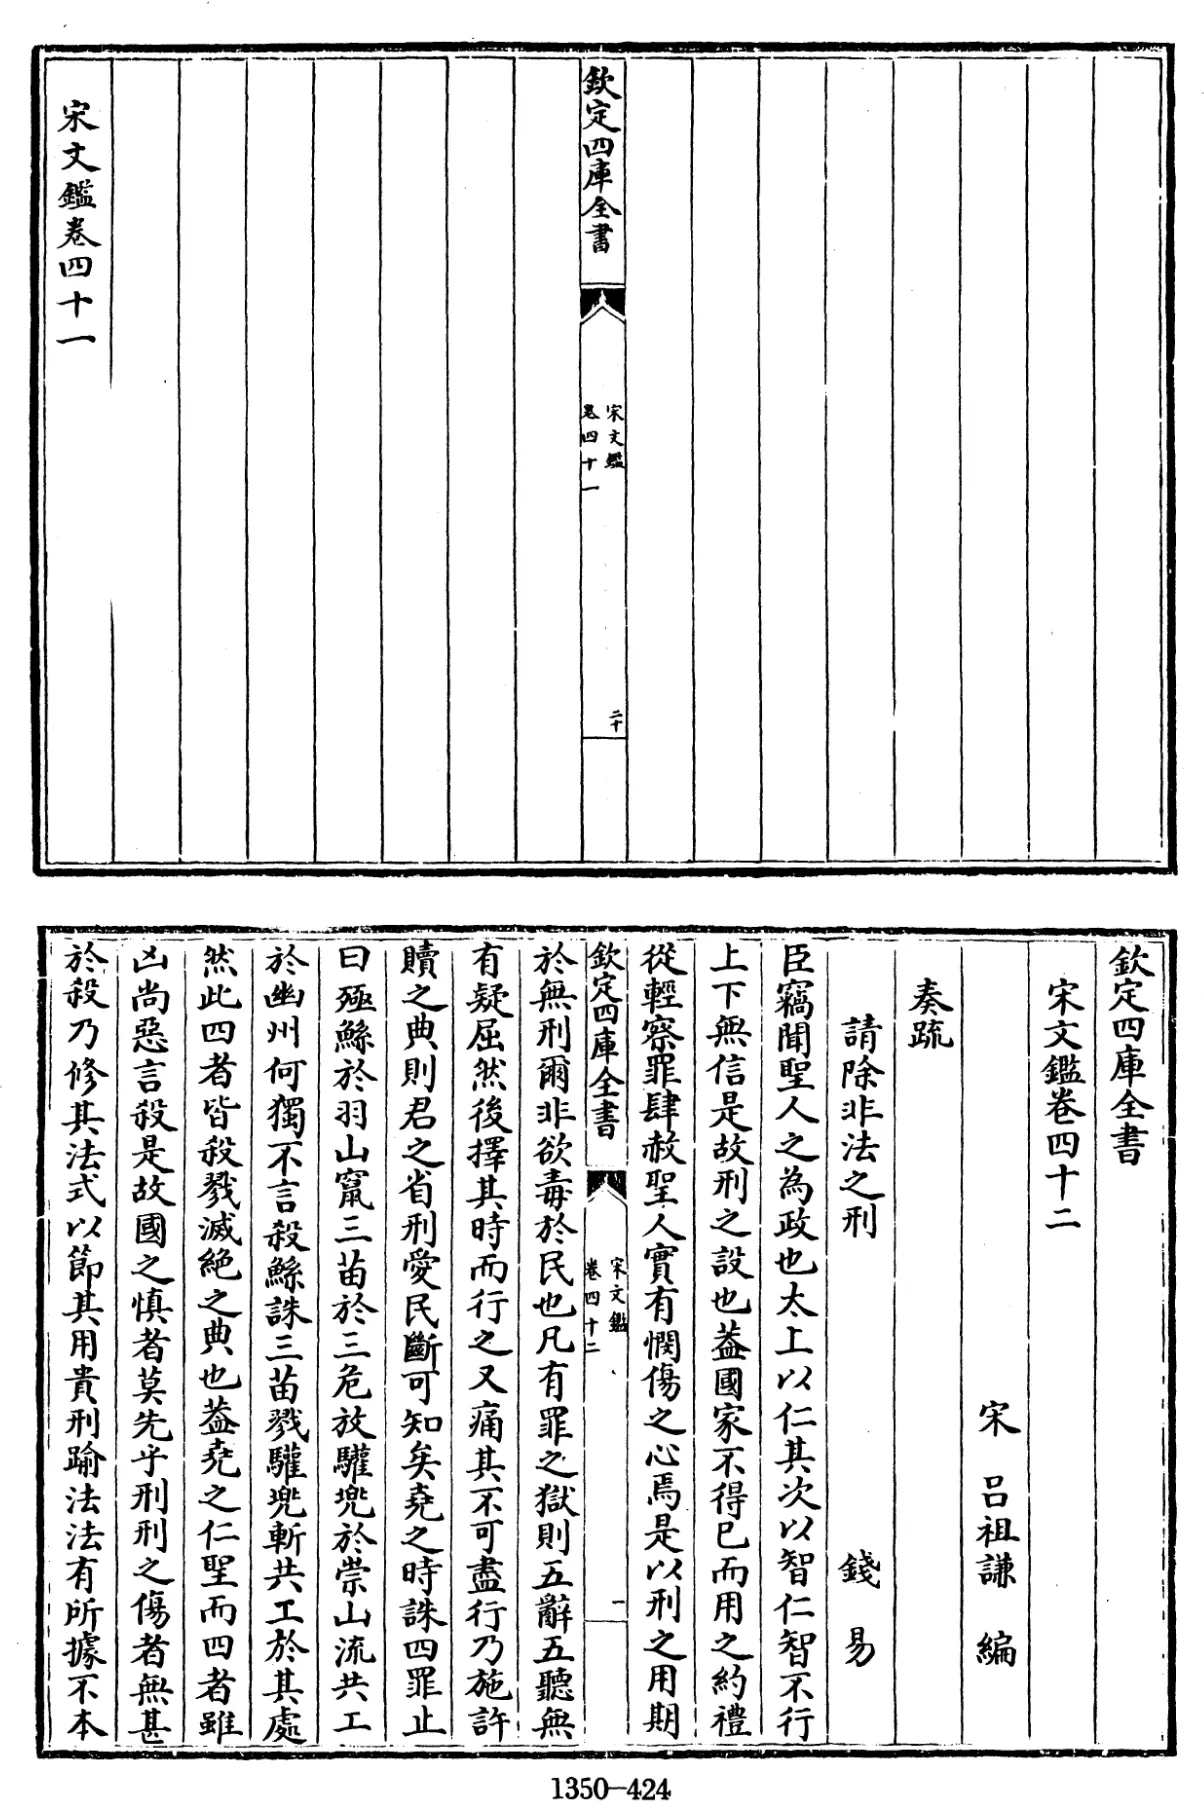 欽定四庫全書
宋文鑑
卷四十一
二十
宋文鑑卷四十一
欽定四庫全書
宋文鑑卷四十二
宋 呂祖謙 編
奏疏
請除非法之刑 錢易
臣竊聞聖人之為政也太上以仁其次以智仁智不行
上下無信是故刑之設也葢國家不得已而用之約禮
從輕察罪肆赦聖人實有憫傷之心焉是以刑之用期
欽定四庫全書
宋文鑑
卷四十二
一
於無刑爾非欲毒於民也凡有罪之獄則五辭五聽無
有疑屈然後擇其時而行之又痛其不可盡行乃施許
贖之典則君之省刑愛民斷可知矣堯之時誅四罪止
曰殛鯀於羽山竄三苗於三危放驩兜於崇山流共工
於幽州何獨不言殺鯀誅三苗戮驩兜斬共工於其處
然此四者皆殺戮滅絶之典也葢堯之仁聖而四者雖
凶尚惡言殺是故國之慎者莫先乎刑刑之傷者無甚
於殺乃修其法式以節其用貴刑踰法法有所據不本
1350-424